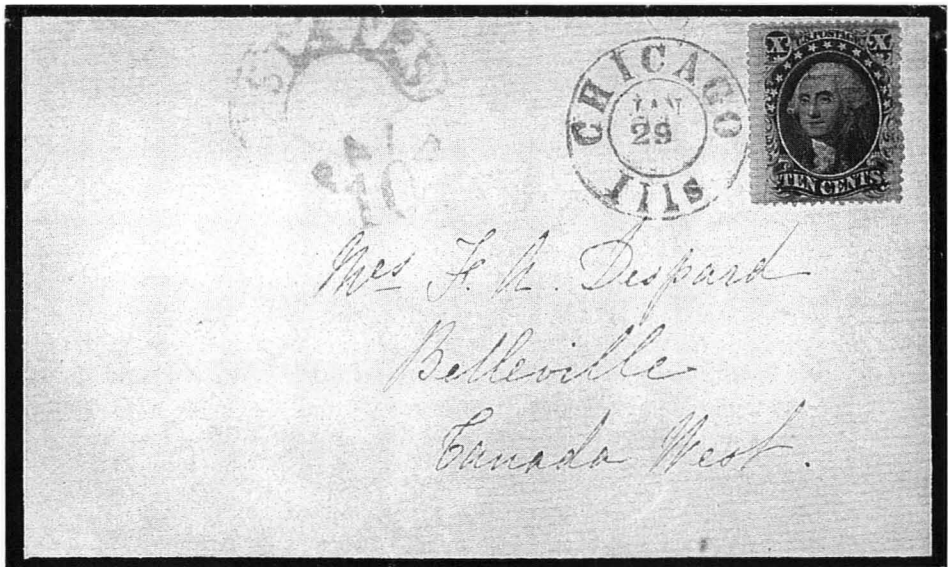 STATES
PAID
10
CHICAGO
JAN
29
Ills
X U.S. POSTAGE X
TEN CENTS
Mrs F. N. Despard
Belleville
Canada West.